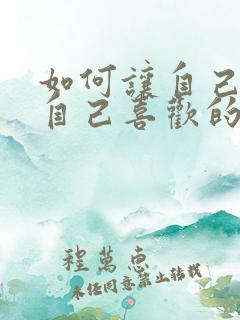 如何讓自己
自己喜歡的
程萬惠
未經同意禁止轉載